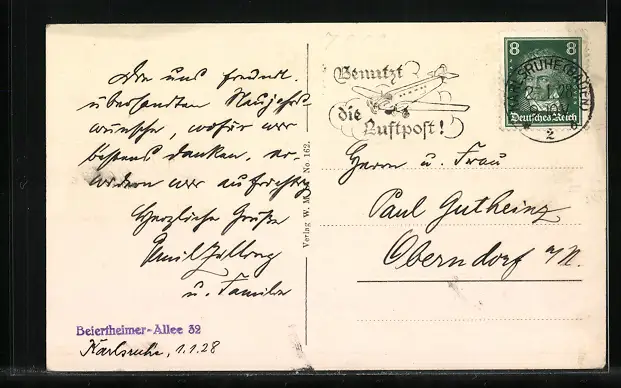 Die uns freundl.
übersandten Neujahrs-
wünsche, wofür wir
bestens danken, er-
widern wir aufrichtig
Herzliche Grüße
Emil
u. Familie
Beiertheimer-Allee 32
Karlsruhe, 1.1.28
Verlag W. M. No 162.
Benutzt
die
Luftpost!
8 8
Deutsches Reich
KARLSRUHE (BADEN)
2
Herrn u. Frau
Paul Gutheinz
Oberndorf a/N.